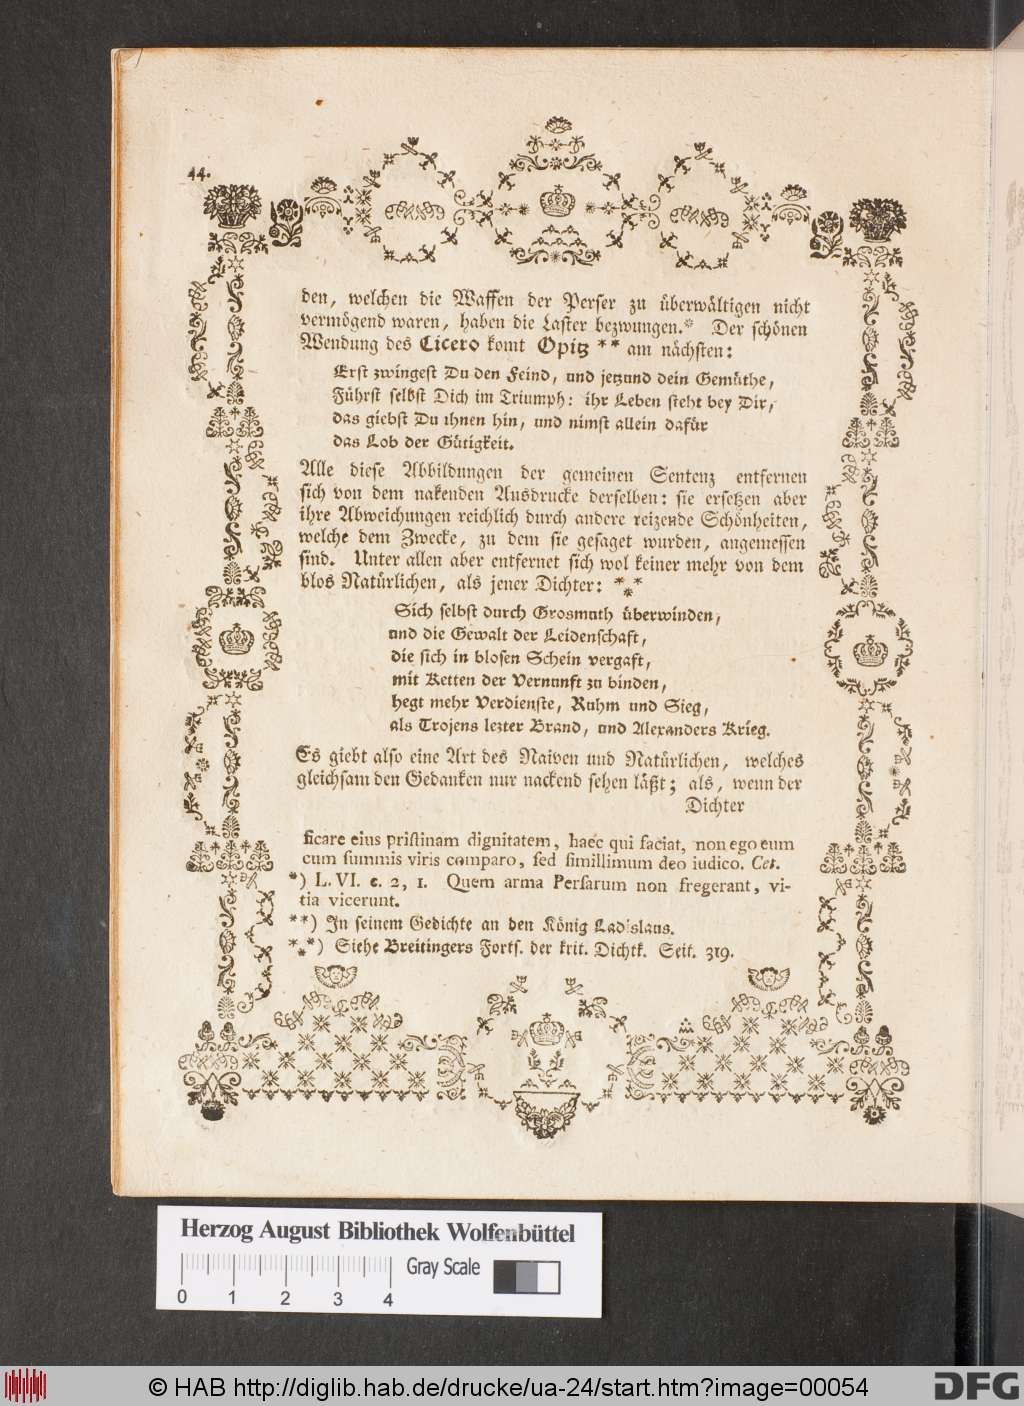 44.
den, welchen die Waffen der Perser zu überwältigen nicht
vermögend waren, haben die Laster bezwungen.* Der schönen
Wendung des Cicero komt Opitz ** am nächsten:
Erst zwingest Du den Feind, und jetzund dein Gemüthe,
Führst selbst Dich im Triumph: ihr Leben steht bey Dir,
das giebst Du ihnen hin, und nimst allein dafür
das Lob der Gütigkeit.
Alle diese Abbildungen der gemeinen Sentenz entfernen
sich von dem nakenden Ausdrucke derselben: sie ersetzen aber
ihre Abweichungen reichlich durch andere reizende Schönheiten,
welche dem Zwecke, zu dem sie gesaget wurden, angemessen
sind. Unter allen aber entfernet sich wol keiner mehr von dem
blos Natürlichen, als jener Dichter: ***
Sich selbst durch Grosmuth überwinden,
und die Gewalt der Leidenschaft,
die sich in blosen Schein vergaft,
mit Ketten der Vernunft zu binden,
hegt mehr Verdienste, Ruhm und Sieg,
als Trojens lezter Brand, und Alexanders Krieg.
Es giebt also eine Art des Naiven und Natürlichen, welches
gleichsam den Gedanken nur nackend sehen läßt; als, wenn der
Dichter
ficare eius pristinam dignitatem, haec qui faciat, non ego eum
cum summis viris comparo, sed simillimum deo iudico. Cet.
*) L. VI. c. 2, 1. Quem arma Persarum non fregerant, vi-
tia vicerunt.
**) In seinem Gedichte an den König Ladislaus.
***) Siehe Breitingers Forts. der krit. Dichtk. Seit. 319.
Herzog August Bibliothek Wolfenbüttel
Gray Scale
0 1 2 3 4
© HAB http://diglib.hab.de/drucke/ua-24/start.htm?image=00054
DFG